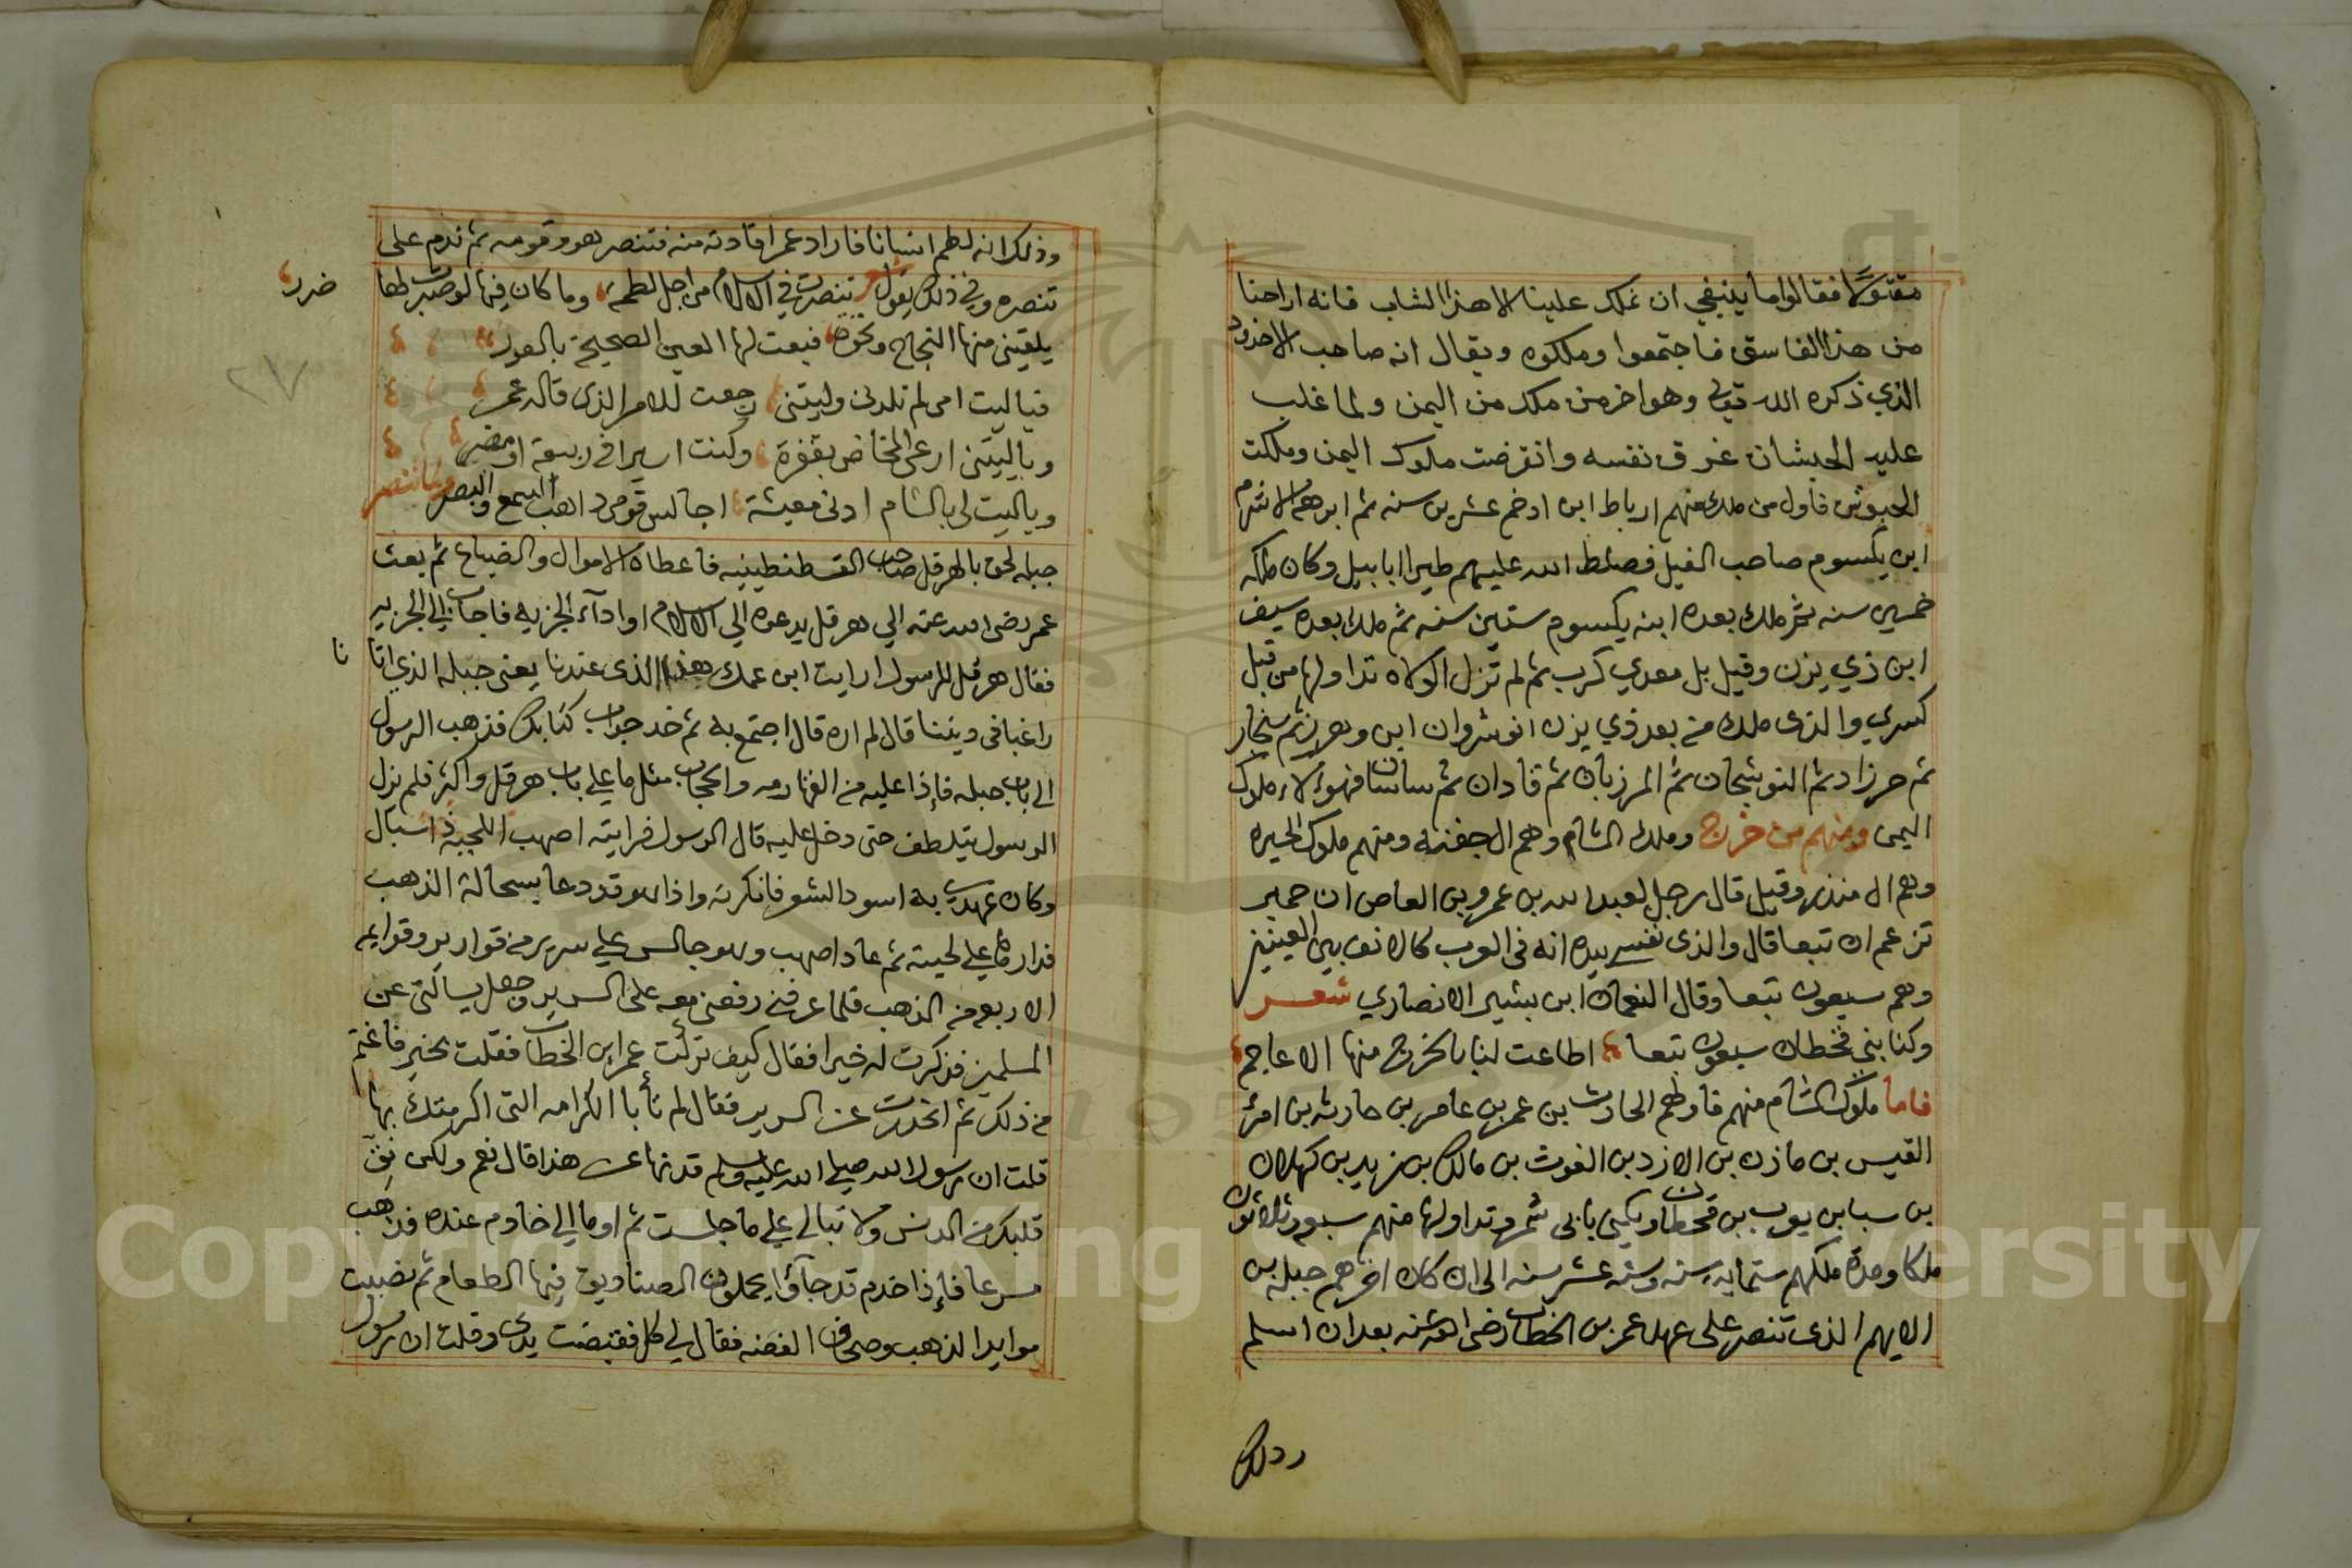 مقتولا فقالوا ما ينبغي ان نملك علينا الا هذا الشاب فانه اراحنا
من هذا الفاسق فاجتمعوا وملكوه ويقال انه صاحب الاخدود
الذي ذكره الله تعالى وهو اخر من ملك من اليمن ولما غلب
عليه الحبشان غرق نفسه وانقرضت ملوك اليمن وملكت
الحبوش فاول من ملك منهم ارياط ابن ادخم عشرين سنه ثم ابرهه الاشرم
ابن يكسوم صاحب الفيل فصلط الله عليهم طيرا ابابيل وكان ملكه
خمسين سنه ثم ملك بعده ابنه يكسوم ستين سنه ثم ملك بعده سيف
ابن ذي يزن وقيل بل معدي كرب ثم لم تزل الولاه تداولها من قبل
كسري والذي ملك من بعد ذي يزن انوشروان ابن وهرز ثم سنجار
ثم حرزاد ثم النوشجان ثم المرزبان ثم قادان ثم ساسان فهولاء ملوك
اليمن ومنهم من خرج وملك الشام وهم ال جفنه ومنهم ملوك الحيره
وهم ال منذر وقيل قال رجل لعبد الله بن عمرو بن العاص ان حمير
تزعم ان تبعا قال والذي نفسي بيده انه في العرب كالانف بين العينين
وهم سبعون تبعا وقال النعمان ابن بشير الانصاري شعر
وكنا بني قحطان سبعون تبعا اطاعت لنا بالخرج منها الاعاجم
فاما ملوك الشام منهم فاولهم الحارث بن عمر بن عامر بن حارثه بن امرئ
القيس بن مازن بن الازد بن الغوث بن مالك بن زيد بن كهلان
بن سبا بن يعرب بن قحطان ويكنى بابي شمر وتداولها منهم سبعه وثلاثون
ملكا ومدة ملكهم ستمايه سنه وسته عشر سنه الى ان كان اخرهم جبله بن
الايهم الذي تنصر على عهد عمر بن الخطاب رضي الله عنه بعد ان اسلم
وذلك
وذلك انه لطم انسانا فاراد عمر اقادته منه فتنصر هو وقومه ثم ندم على
تنصره وفي ذلك يقول شعر تنصرت في الاسلام من اجل لطمة وما كان فيها لو صبرت لها ضرر
يلقيني منها اللجاج ونخوة فبعت لها العين الصحيحة بالعور
فيا ليت امي لم تلدني وليتني رجعت للامر الذي قاله عمر
ويا ليتني ارعى المخاض بقفرة وكنت اسيرا في ربيعة او مضر
ويا ليت لي بالشام ادنى معيشة اجالس قومي ذاهب السمع والبصر ولما تنصر
جبله لحق بالهرقل صاحب القسطنطينيه فاعطاه الاموال والضياع ثم بعث
عمر رضي الله عنه الي هرقل يدعوه الي الاسلام او اداء الجزيه فاجاب الي الجزيه
فقال هرقل للرسول ارايت ابن عمك هذا الذي عندنا يعني جبله الذي اتانا
راغبا في ديننا قال لم اره قال اجتمع به ثم خد جواب كتابك فذهب الرسول
الى باب جبله فاذا عليه من القهارمه والحجاب مثل ما علي باب هرقل واكثر فلم يزل
الرسول يتلطف حتى دخل عليه قال الرسول فرايته اصهب اللحية ذا سبال
وكان عهدي به اسود الشعر فانكرته واذا هو قد دعا بسحالة الذهب
فدارها علي لحيته ثم عاد اصهب وهو جالس علي سرير من قوارير وقوايمه
الاربعه من الذهب فلما عرفني رفعني معه على السرير وجعل يسالني عن
المسلمين فذكرت له خيرا فقال كيف تركت عمر ابن الخطاب فقلت بخير فاغتم
من ذلك ثم انحدرت عن السرير فقال لم تأبا الكرامه التي اكرمتك بها
قلت ان رسول الله صلى الله عليه وسلم قد نها عن هذا قال نعم ولكن نق
قلبك من الدنس ولا تبالي علي ما جلست ثم اوما الي خادم عنده فذهب
مسرعا فاذا خدم قد جاؤا يحملون الصناديق فيها الطعام ثم نصبت
موايد الذهب وصحاف الفضه فقال لي كل فقبضت يدي وقلت ان رسول
٢٧
Copyright © King Saud University